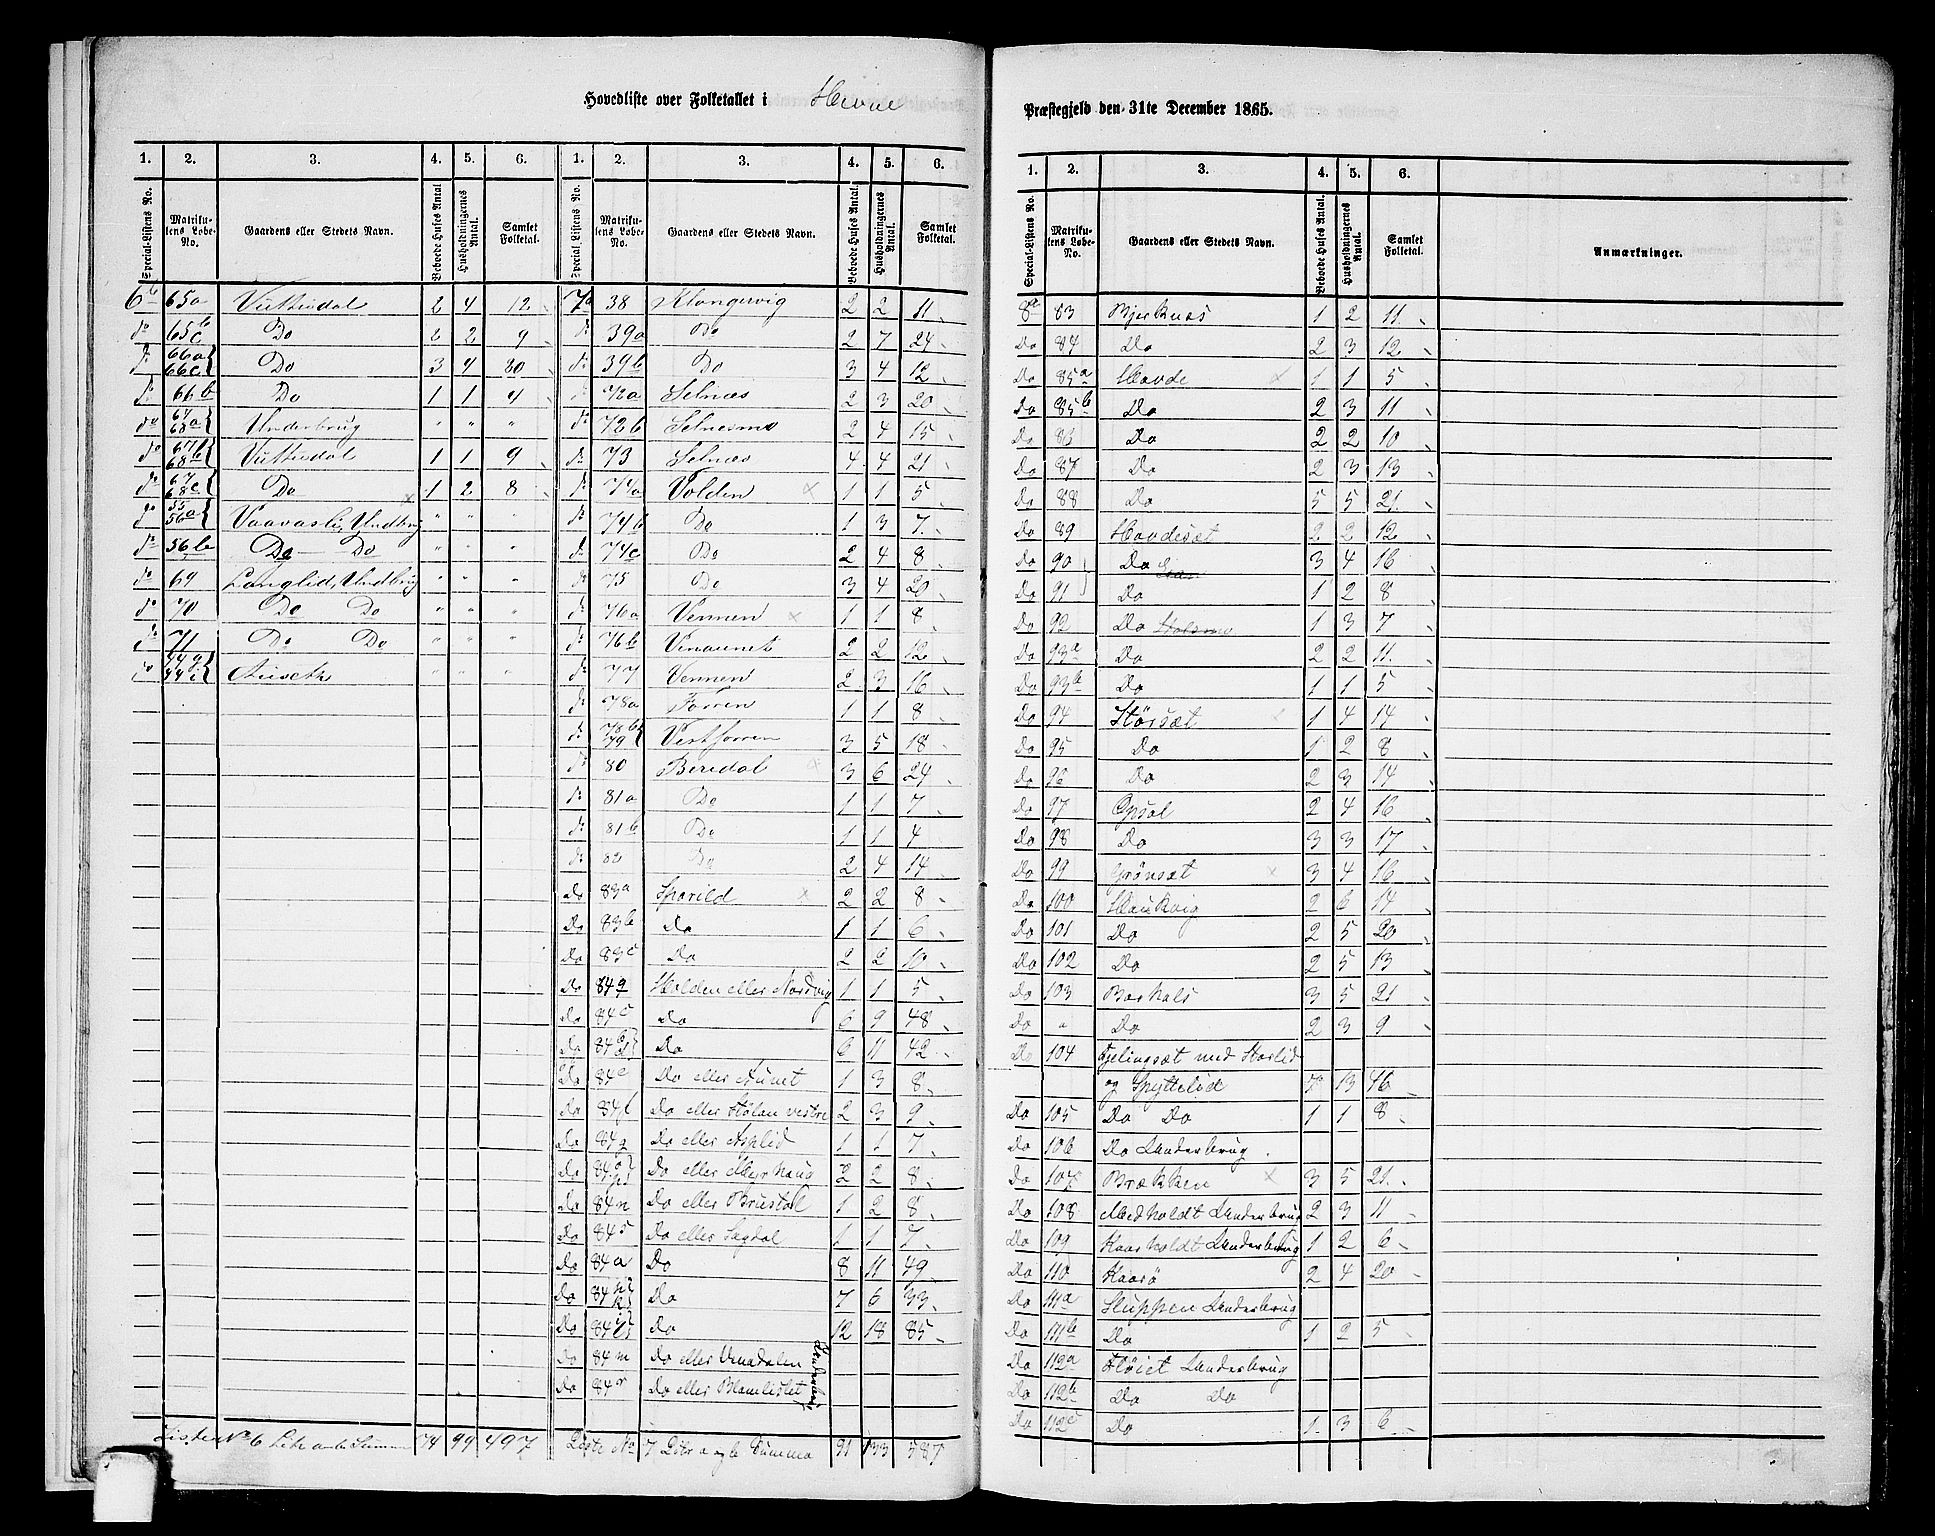 Hovedliste over Folketallet i Hevne
Præstegjeld den 31te December 1865.
1. 2. 3. 4. 5. 6. 1. 2. 3. 4. 5. 6.
Special-Listens No. Matrikulens Løbe-No. Gaardens eller Stedets Navn. Beboede Huses Antal Husholdningernes Antal. Samlet Folketal. Special Listens No. Matrikulens Løbe-No. Gaardens eller Stedets Navn. Beboede Huses Antal. Husholdningernes Antal. Samlet Folketal.
6b 65a Vuttudal 2 4 12
do 65b c Do 2 2 9
do 66a 66c Do 3 4 30
do 66b Do 1 1 4
do 67a 68a Underbrug " " "
do 67b 68b Vuttudal 1 1 9
do 67c 68c Do 1 2 8
do 55 56a Vaavaslid, Undbrug " " "
do 56b Do Do " " "
do 69 Langlid, Undbrug " " "
do 70 Do Do " " "
do 71 Do Do " " "
do 44g 44i Auseth " " "
Listen No 6 Litr a b Summa 74 99 497
7a 38 Slongervig 2 2 11
do 39a Do 2 7 24
do 39b Do 3 4 12
do 72a Selnæs 2 3 20
do 72b Selnesmo 2 4 15
do 73 Selnæs 4 4 21
do 74a Volden 1 1 5
do 74b Do 1 3 7
do 74c Do 2 4 8
do 75 Do 3 4 20
do 76a Vennen 1 1 8
do 76b Vinaunet 2 2 12
do 77 Vennen 2 3 16
do 78a Forren 1 1 8
do 78b 79 Vestforren 3 5 18
do 80 Beredal 3 6 24
do 81a Do 1 1 7
do 81b Do 1 1 4
do 82 Do 2 4 14
Do 83a Sporild 2 2 8
Do 83b Do 1 1 6
Do 83c Do 2 2 10
Do 84q Holden eller Nordvig 1 1 5
Do 84c Do 6 9 48
Do 84b d Do 6 11 42
Do 84e Do eller Aunet 1 3 8
Do 84f Do eller Stølan vestre 2 3 9
Do 84g Do eller Asplid 1 1 7
Do 84 Do eller Myrhaug 2 2 8
Do 84n Do eller Brustøl 1 2 8
Do 84s Do eller Sagdal 1 1 7
Do 84a Do 8 11 49
Do 84 k Do 7 6 33
Do 84 Do 12 18 85
Do 84m Do eller Vinadalen
Do 84r Do eller Blomlistet Underbrug
Liste No 7 Litr a og b Summa 91 133 587
1. 2. 3. 4. 5. 6.
Special-Listens No. Matrikulens Løbe-No. Gaardens eller Stedets Navn. Beboede Huses Antal. Husholdningernes Antal. Samlet Folketal. Anmærkninger.
8a 83 Bjerknæs 1 2 11
Do 84 Do 2 3 12
Do 85a Hovde 1 1 5
Do 85b Do 2 3 11
Do 83 Do 2 2 10
Do 87 Do 2 3 13
Do 88 Do 5 5 21
Do 89 Hovdesæt 2 2 12
Do 90 Do 3 4 16
Do 91 Do 1 2 8
Do 92 Do Holsmo 1 3 7
Do 93a Do 2 2 11
Do 93b Do 1 1 5
Do 94 Størsæt 1 4 14
Do 95 Do 1 2 8
Do 96 Do 2 3 14
Do 97 Opsal 2 4 16
Do 98 Do 3 3 17
Do 99 Grønsæt 3 4 16
Do 100 Haukvig 2 6 14
Do 101 Do 2 5 20
Do 102 Do 2 5 13
Do 103 Barhals 3 5 21
Do " Do 2 3 9
Do 104 Fjelingsæt med Storlid
og Spyttelid 7 13 46
Do 105 Do Do 1 1 8
Do 106 Do Underbrug
Do 107 Brækken 3 5 21
Do 108 Medholdt Underbrug 2 3 11
Do 109 Kaarholdt Underbrug 1 2 6
Do 110 Kaarø 2 4 20
Do 111a Sluppen Underbrug
Do 111b Do 1 2 5
Do 112a Fløiet Underbrug
Do 112b Do Do
Do 112c Do 1 3 6